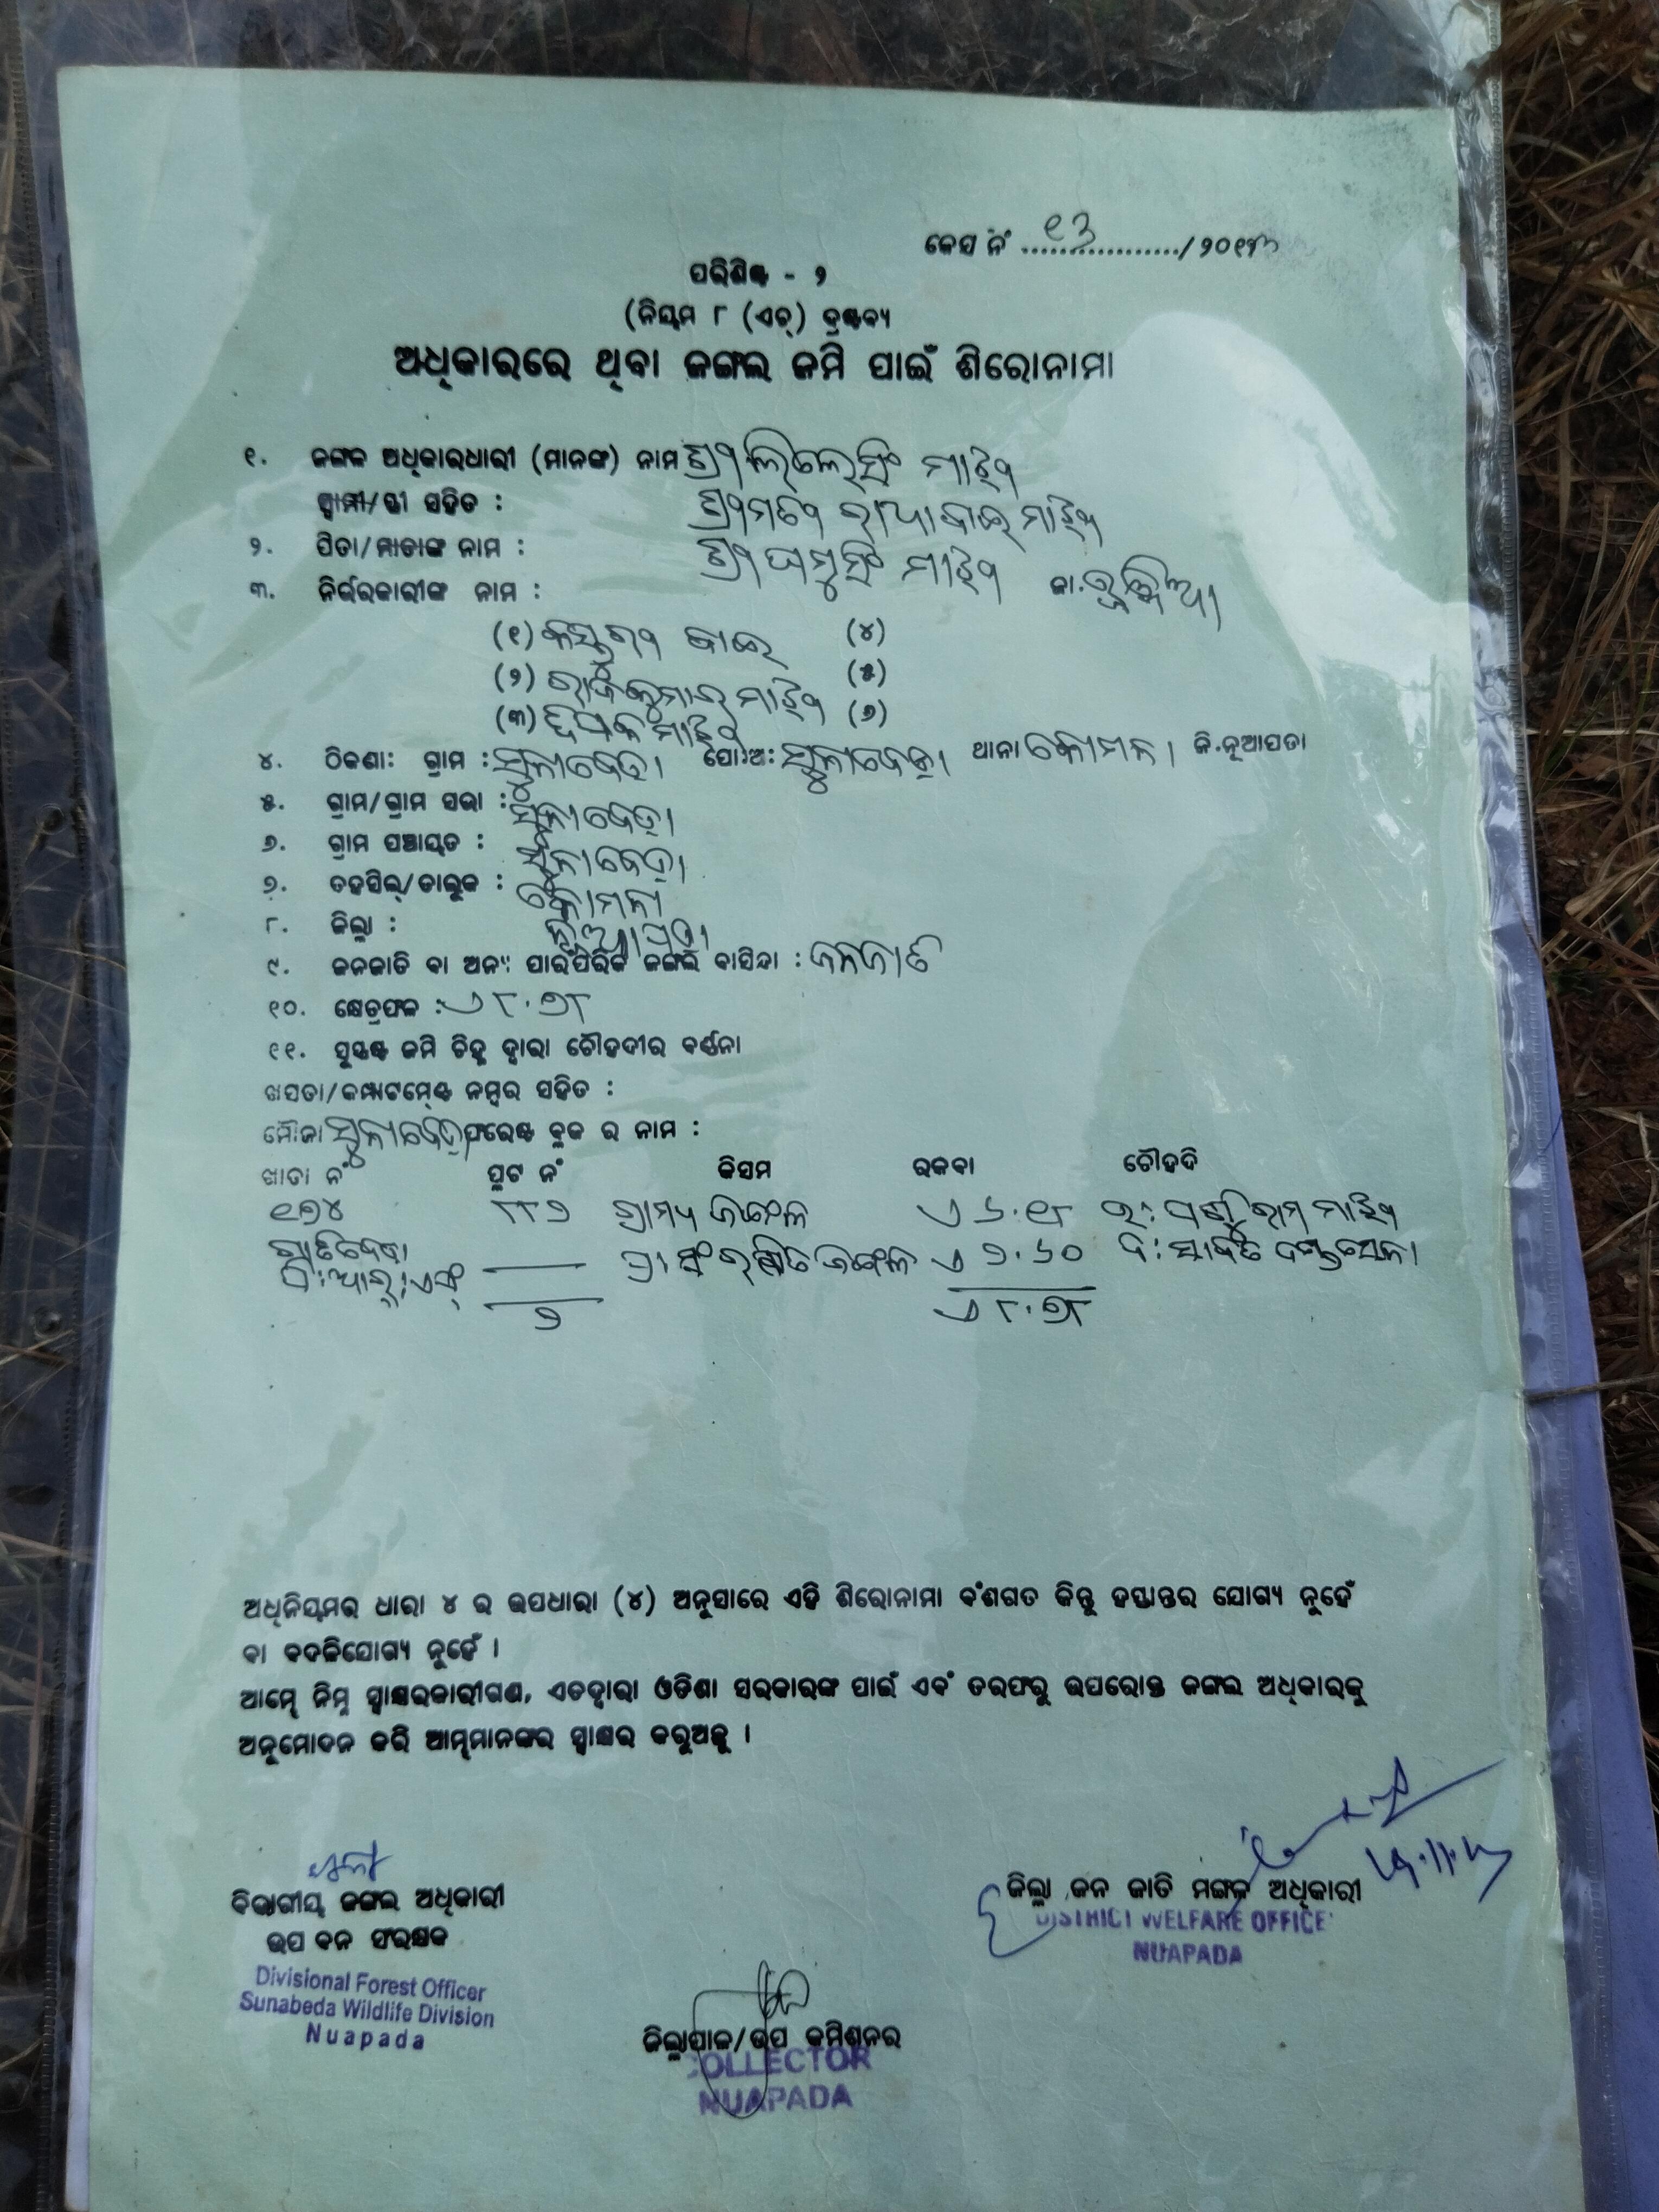 କେସ ନଂ ୧୩ /୨୦୧୩
ପରିଶିଷ୍ଟ - ୨
(ନିୟମ ୮ (ଏଚ୍) ଦ୍ରଷ୍ଟବ୍ୟ
ଅଧିକାରରେ ଥିବା ଜଙ୍ଗଲ ଜମି ପାଇଁ ଶିରୋନାମା
୧. ଜଙ୍ଗଳ ଅଧିକାରଧାରୀ (ମାନଙ୍କ) ନାମ ଶ୍ରୀ ଲିଲେସିଂ ମାଝି
ସ୍ୱାମୀ/ସ୍ତ୍ରୀ ସହିତ : ଶ୍ରୀମତୀ ରାଧାବାଇ ମାଝି
୨. ପିତା/ମାତାଙ୍କ ନାମ : ଶ୍ରୀ ଘାସୁସିଂ ମାଝି ଜା.
୩. ନିର୍ଭରକାରୀଙ୍କ ନାମ :
(୧) କସ୍ତୁରୀ ବାଇ (୪)
(୨) ରାଜକୁମାର ମାଝି (୫)
(୩) ଦିପକ ମାଝି (୬)
୪. ଠିକଣା: ଗ୍ରାମ : ସୁନାବେଡା ପୋ:ଅ: ସୁନାବେଡା ଥାନା କୋମନା ଜି.ନୂଆପଡା
୫. ଗ୍ରାମ/ଗ୍ରାମ ସଭା : ସୁନାବେଡା
୬. ଗ୍ରାମ ପଞ୍ଚାୟତ : ସୁନାବେଡା
୭. ତହସିଲ୍/ତାଲୁକ : କୋମନା
୮. ଜିଲ୍ଲା : ନୂଆପଡା
୯. ଜନଜାତି ବା ଅନ୍ୟ ପାରଂପରିକ ଜଙ୍ଗଲ ବାସିନ୍ଦା : ଜନଜାତି
୧୦. କ୍ଷେତ୍ରଫଳ : ଏ ୮.୭୮
୧୧. ସୁସ୍ପଷ୍ଟ ଜମି ଚିହ୍ନ ଦ୍ୱାରା ଚୌହଦୀର ବର୍ଣ୍ଣନା
ଖସଡା/କମ୍ପାଟମେଣ୍ଟ ନମ୍ବର ସହିତ :
ମୌଜା ସୁନାବେଡା ଫରେଷ୍ଟ ବ୍ଲକ ର ନାମ :
ଖାତା ନଂ ପ୍ଲଟ ନଂ କିସମ ରକବା ଚୌହଦି
୧୭୪ ୮୮୬ ଗ୍ରାମ୍ୟ ଜଙ୍ଗଲ ଏ ୬.୧୮ ଉ: ମାଝି
ପି:ଆର୍:ଏଫ୍ ପ୍ର। ସଂରକ୍ଷିତ ଜଙ୍ଗଲ ଏ ୨.୬୦ ଦ:
୨ ଏ ୮.୭୮
ଅଧିନିୟମର ଧାରା ୪ ର ଉପଧାରା (୪) ଅନୁସାରେ ଏହି ଶିରୋନାମା ବଂଶଗତ କିନ୍ତୁ ହସ୍ତାନ୍ତର ଯୋଗ୍ୟ ନୁହେଁ
ବା ବଦଳିଯୋଗ୍ୟ ନୁହେଁ ।
ଆମ୍ଭେ ନିମ୍ନ ସ୍ୱାକ୍ଷରକାରୀଗଣ, ଏତଦ୍ୱାରା ଓଡିଶା ସରକାରଙ୍କ ପାଇଁ ଏବଂ ତରଫରୁ ଉପରୋକ୍ତ ଜଙ୍ଗଲ ଅଧିକାରକୁ
ଅନୁମୋଦନ କରି ଆମ୍ଭମାନଙ୍କର ସ୍ୱାକ୍ଷର କରୁଅଛୁ ।
ବିଭାଗୀୟ ଜଙ୍ଗଲ ଅଧିକାରୀ
ଉପ ବନ ସଂରକ୍ଷକ
Divisional Forest Officer
Sunabeda Wildlife Division
Nuapada
ଜିଲ୍ଲା ଜନ ଜାତି ମଙ୍ଗଳ ଅଧିକାରୀ
DISTRICT WELFARE OFFICE
NUAPADA
ଜିଲ୍ଲାପାଳ/ଉପ କମିଶନର
COLLECTOR
NUAPADA